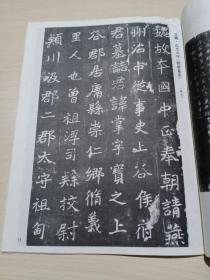 魏故本國中正奉朝請燕
州治中從事史上谷侯府
君墓誌諱掌字寶之上
谷郡居庸縣崇仁鄉脩義
里人也曾祖浮司隸校尉
潁川汲郡二郡太守祖甸